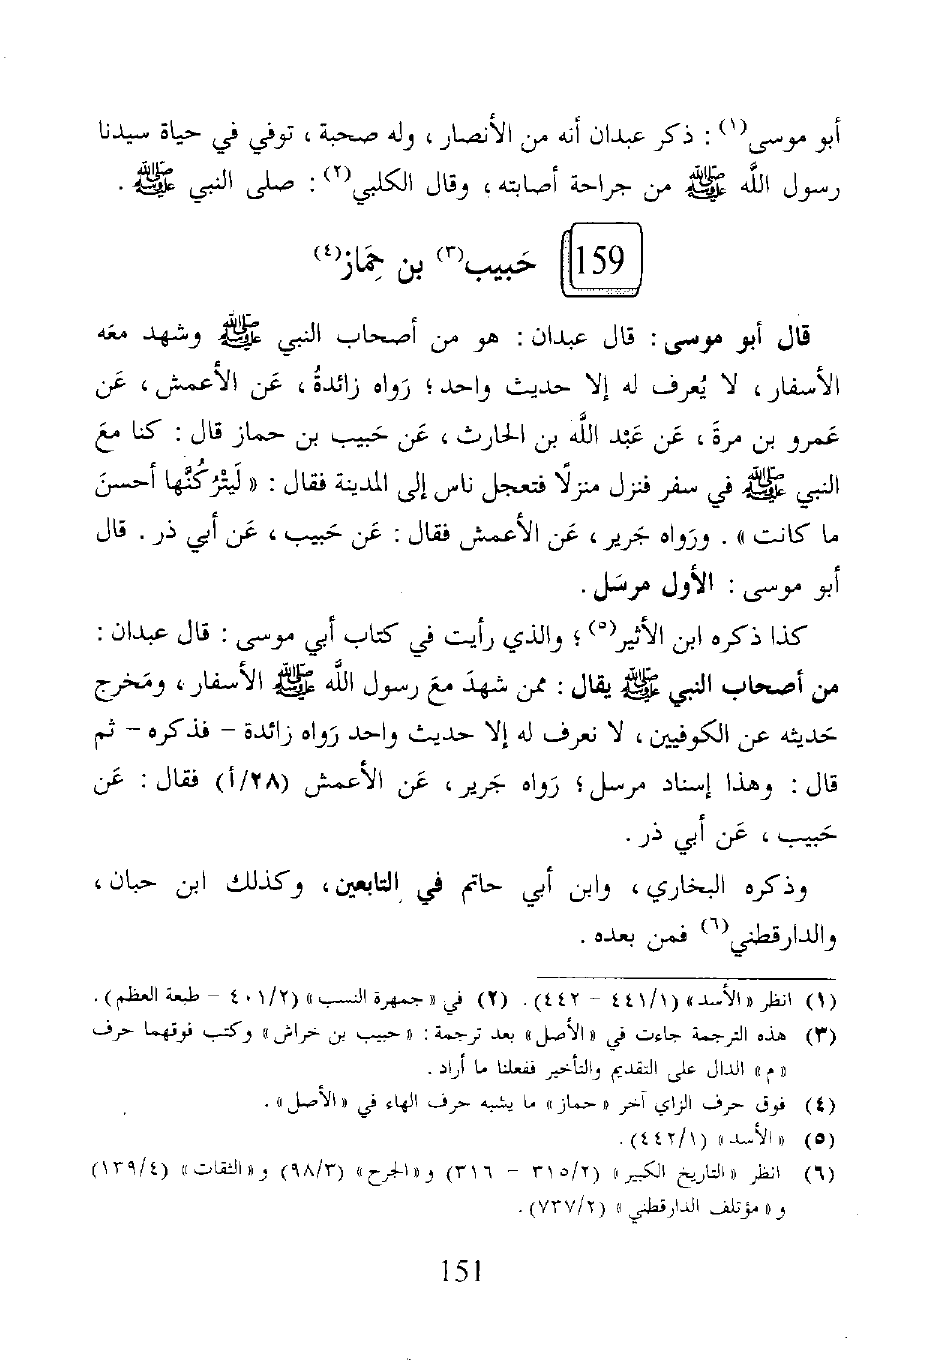 أبو موسى(١) : ذكر عبدان أنه من الأنصار ، وله صحبة ، توفي في حياة سيدنا
رسول اللَّه ﷺ من جراحة أصابته ، وقال الكلبي(٢) : صلى النبي ﷺ .
159 حَبيب(٣) بن حِمَاز(٤)
قال أبو موسى : قال عبدان : هو من أصحاب النبي ﷺ وشهد معَه
الأسفار ، لا يُعرف له إلا حديث واحد ؛ رَواه زائدةُ ، عَن الأعمش ، عَن
عَمرو بن مرةَ ، عَن عَبْد اللَّه بن الحارث ، عَن حَبيب بن حماز قال : كنا معَ
النبي ﷺ في سفر فنزل منزلًا فتعجل ناس إلى المدينة فقال : « لَيَتْرُكُنَّها أحسنَ
ما كانت » . ورَواه جَرير ، عَن الأعمش فقال : عَن حَبيب ، عَن أبي ذر . قال
أبو موسى : الأول مرسَل .
كذا ذكره ابن الأثير(٥) ؛ والذي رأيت في كتاب أبي موسى : قال عبدان :
من أصحاب النبي ﷺ يقال : ممن شهدَ معَ رسول اللَّه ﷺ الأسفار ، ومَخرج
حَديثه عن الكوفيين ، لا نعرف له إلا حديث واحد رَواه زائدة - فذكره - ثم
قال : وهذا إسناد مرسل ؛ رَواه جَرير ، عَن الأعمش (٢٨/أ) فقال : عَن
حَبيب ، عَن أبي ذر .
وذكره البخاري ، وابن أبي حاتم في التابعين ، وكذلك ابن حبان ،
والدارقطني(٦) فمن بعده .
(١) انظر « الأسد » (٤٤١/١ - ٤٤٢) . (٢) في « جمهرة النسب » (٤٠١/٢ - طبعة العظم) .
(٣) هذه الترجمة جاءت في « الأصل » بعد ترجمة : « حبيب بن خراش » وكتب فوقهما حرف
« م » الدال على التقديم والتأخير ففعلنا ما أراد .
(٤) فوق حرف الزاي آخر « حماز » ما يشبه حرف الهاء في « الأصل » .
(٥) « الأسد » (٤٤٢/١) .
(٦) انظر « التاريخ الكبير » (٣١٥/٢ - ٣١٦) و « الجرح » (٩٨/٣) و « الثقات » (١٣٩/٤)
و « مؤتلف الدارقطني » (٧٣٧/٢) .
151